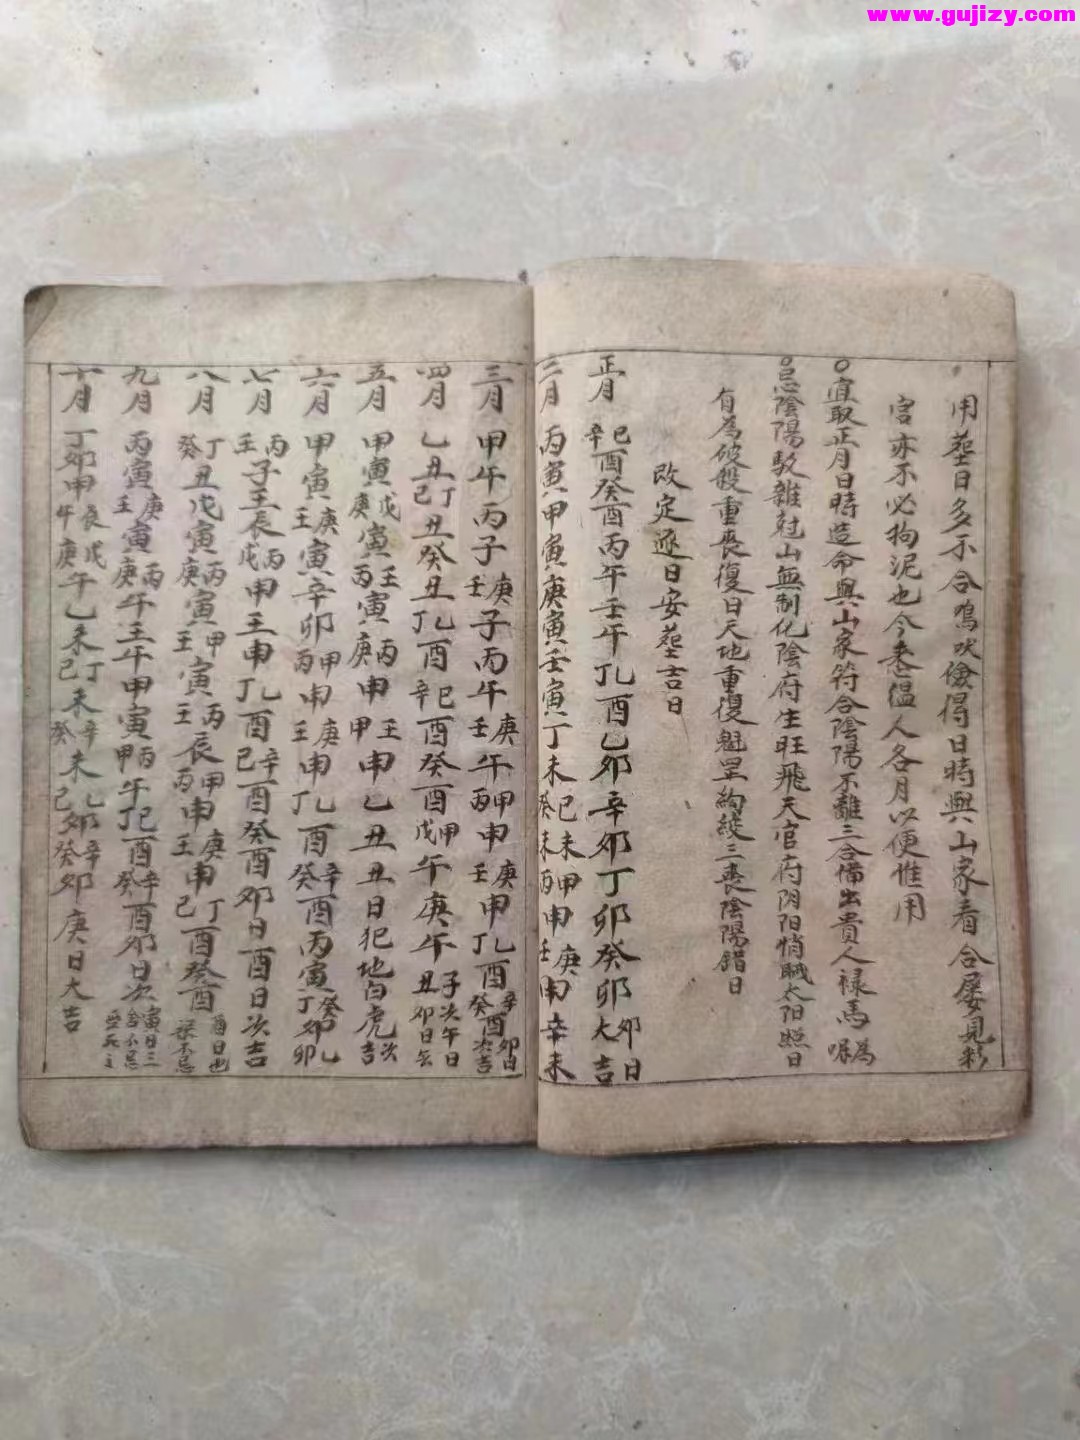 www.gujizy.com
用塟日多不合鳴吠儉得日時與山家看合屡見衫
宮亦不必拘泥也今巻愠人各月以便惟用
○宜取正月日時造命與山家符合陰陽不離三合借出貴人禄馬為
○忌陰陽駁雜尅山無制化陰府生旺飛天官府阴阳悄賊太阳照日
有為破殺重喪復日天地重復魁罡絢綾三喪陰陽錯日
改定逐日安塟吉日
正月 巳辛酉癸酉丙午壬午丁乚酉乙卯辛卯丁卯癸卯卯日大吉
二月 丙寅甲寅庚寅壬寅丁未巳未癸未甲申丙申庚申壬申辛未
三月 甲午丙子庚子壬子丙午庚午壬午甲申丙申庚申壬申丁乚酉辛酉癸酉卯日次吉
四月 乙丑丁丑己丑癸丑乚酉丁酉巳酉辛酉癸酉甲午戊午庚午子次午日丑卯日去
五月 甲寅戊寅庚寅壬寅丙寅丙申庚申王申甲申乙丑丑日犯地白虎次吉
六月 甲寅庚寅壬寅辛卯甲申丙申庚申壬申乚酉丁酉辛酉癸酉丙寅癸卯丁卯乚卯
七月 丙子壬子王辰丙申戊申王申乚酉丁酉辛酉己酉癸酉卯日酉日次吉
八月 丁丑癸丑戊寅丙寅庚寅甲寅壬寅丙辰王辰甲申丙申庚申王申丁酉己酉癸酉酉日也葬不忌
九月 丙寅庚寅壬寅丙午庚午王午甲寅丙午甲午巳酉丁酉辛酉癸酉卯日次寅日三合不忌
十月 丁卯甲午辰戊午庚午乙未丁未己未辛未癸未乙卯己卯辛卯癸卯庚日大吉